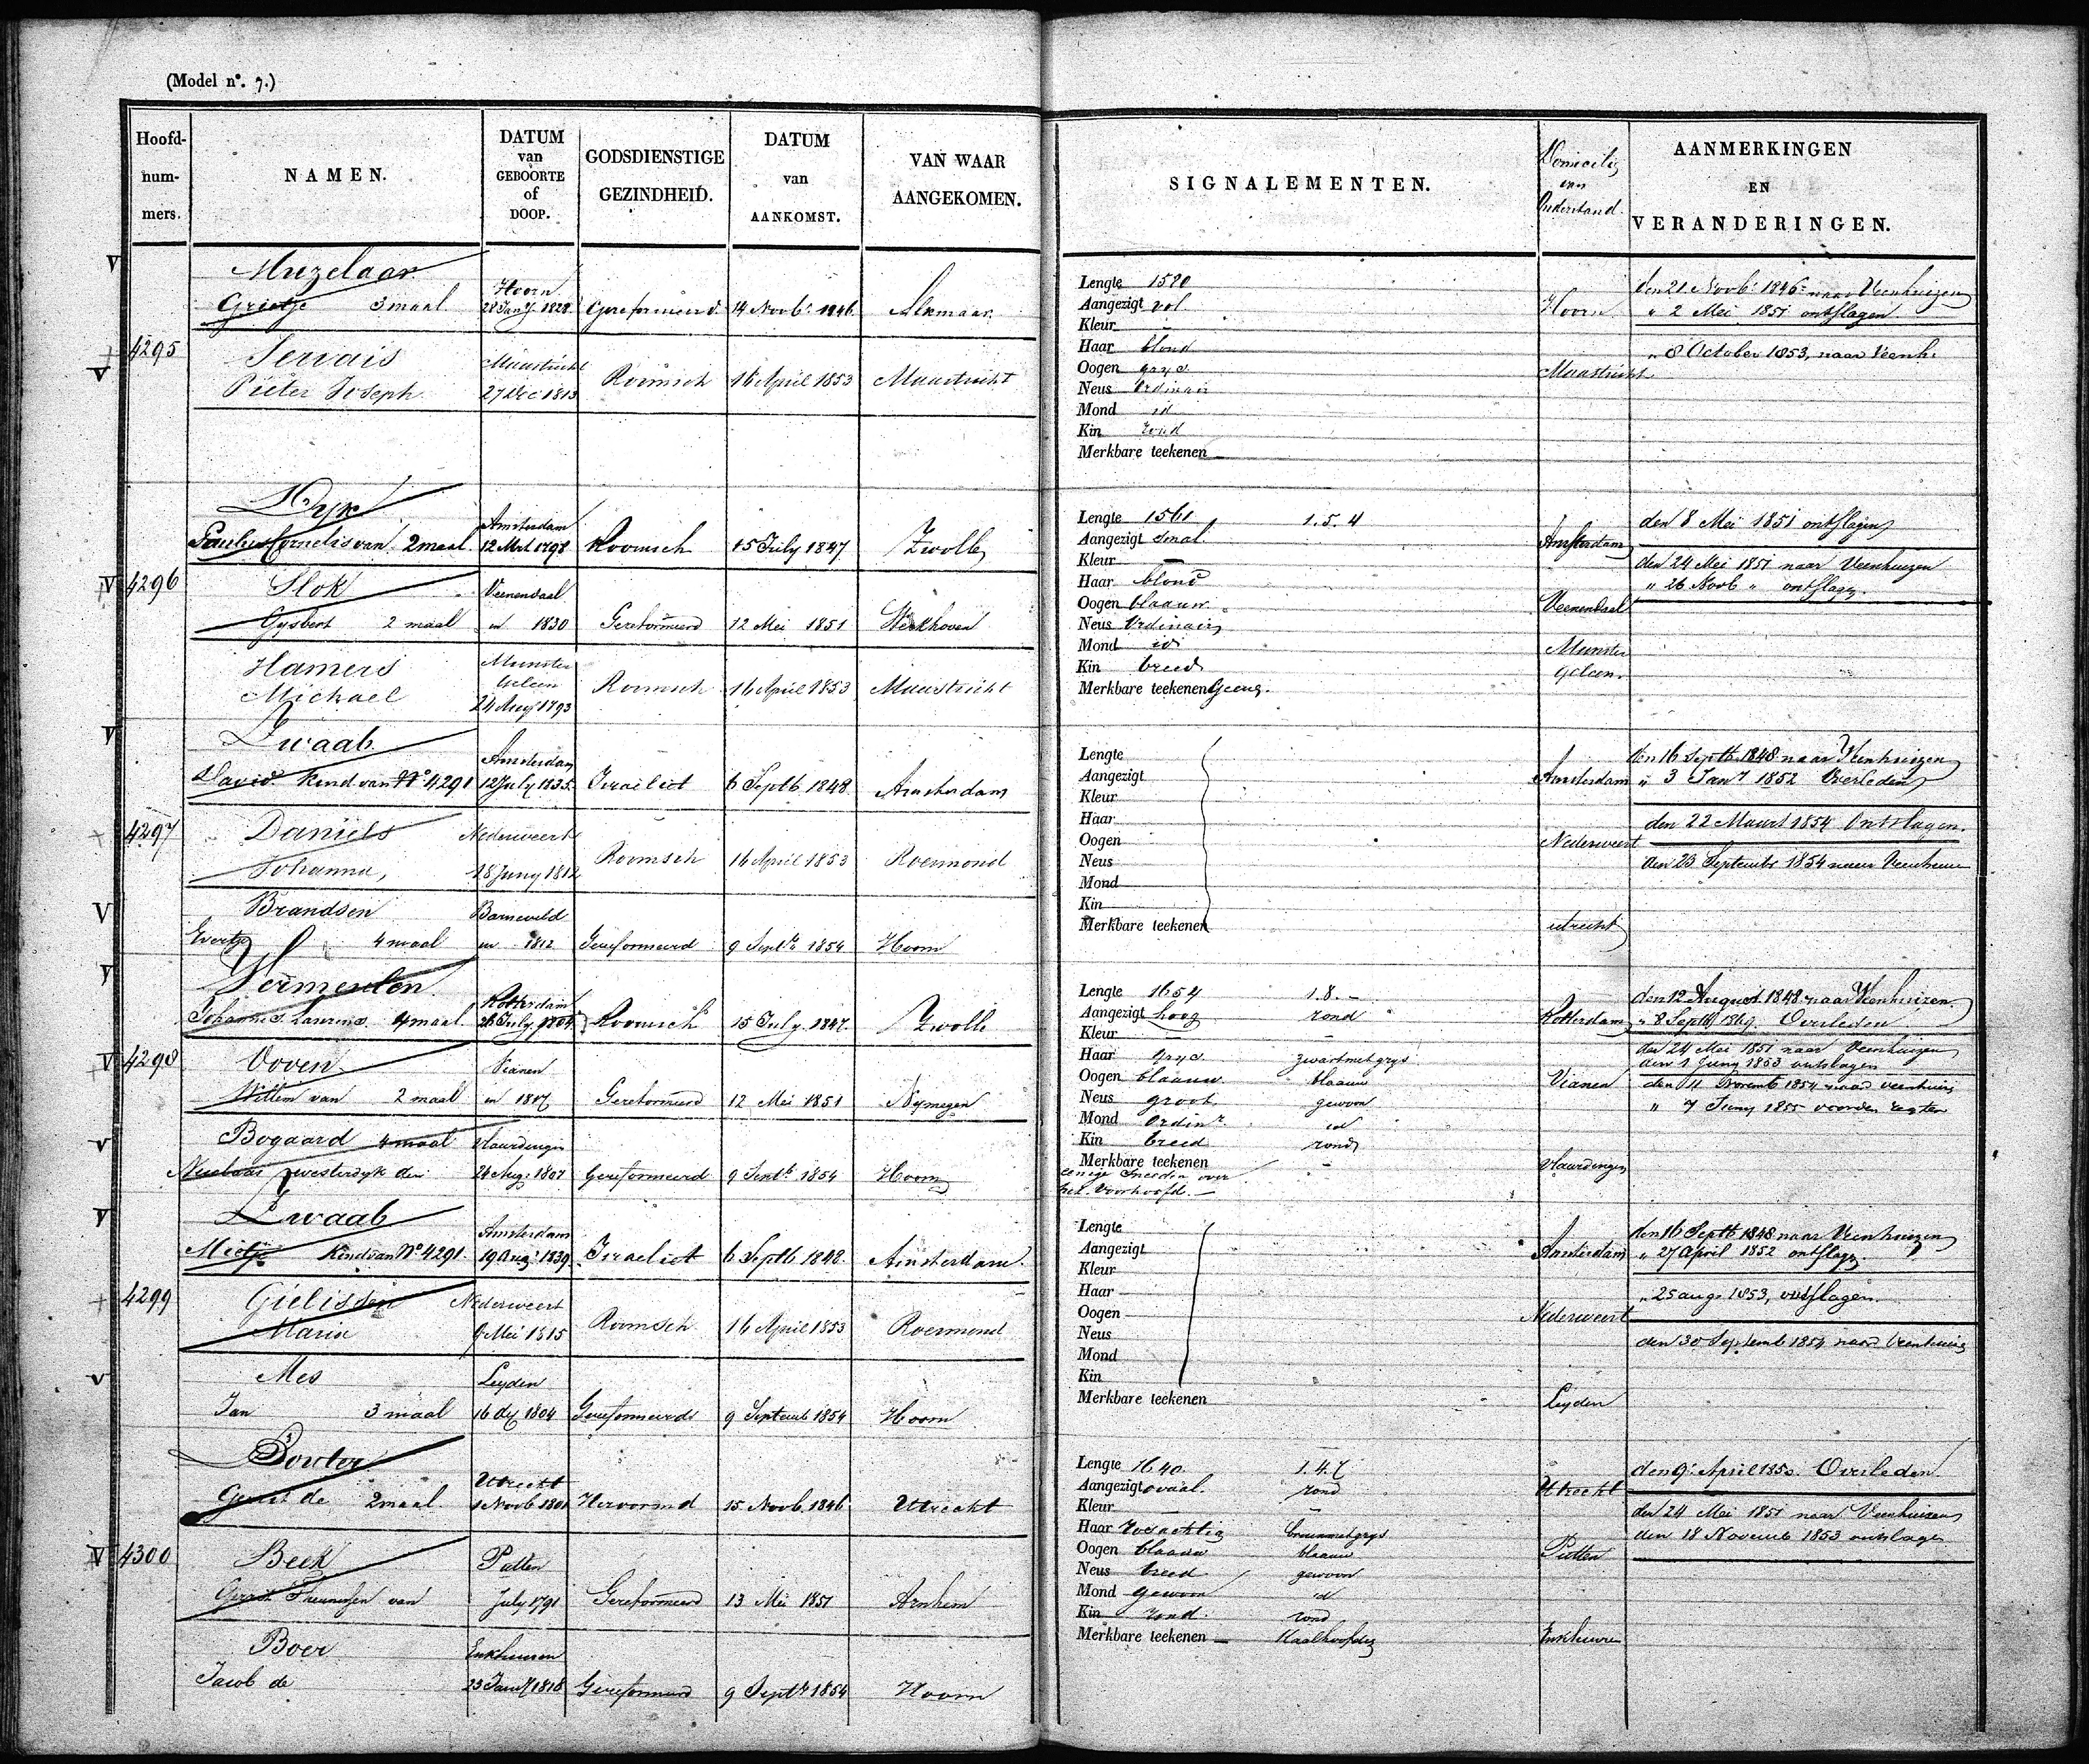 (Model n°. 7.)
Hoofd-
num-
mers.
NAMEN.
DATUM
van
GEBOORTE
of
DOOP.
GODSDIENSTIGE
GEZINDHEID.
DATUM
van
AANKOMST.
VAN WAAR
AANGEKOMEN.
SIGNALEMENTEN.
Domicilie
van
Onderstand.
AANMERKINGEN
EN
VERANDERINGEN.
V
4295
Muzelaar
Grietje 3 maal
Hoorn
28 Jany 1828
Gereformeerd
14 Novb. 1846
Alkmaar
Lengte 1590
Aangezigt vol
Kleur
Haar blond
Oogen grys
Neus Ordinair
Mond id
Kin rond
Merkbare teekenen
Hoorn
den 21 Novb. 1846 naar Veenhuizen
" 2 Mei 1851 ontslagen
V
Servais
Pieter Joseph
Maastricht
27 Dec 1813
Roomsch
16 April 1853
Maastricht
Maastricht
" 8 October 1853, naar Veenh.
4296
Dyk
Paulus Cornelis van 2 maal
Amsterdam
12 Mrt 1798
Roomsch
15 July 1847
Zwolle
Lengte 1561 1.5.4
Aangezigt smal
Kleur —
Haar blond
Oogen blaauw
Neus Ordinair
Mond id
Kin breed
Merkbare teekenen Geene.
Amsterdam
den 8 Mei 1851 ontslagen
V
Slok
Gysbert 2 maal
Veenendaal
in 1830
Gereformeerd
12 Mei 1851
Werkhoven
Veenendaal
den 24 Mei 1851 naar Veenhuizen
" 26 Novb " ontslagen.
Hamers
Michael
Munster
Geleen
24 Aug 1793
Roomsch
16 April 1853
Maastricht
Munster
geleen.
V
4297
Zwaab
David Kind van N° 4291
Amsterdam
12 July 1835.
Israeliet
6 Septb 1848.
Amsterdam
Lengte
Aangezigt
Kleur
Haar
Oogen
Neus
Mond
Kin
Merkbare teekenen
Amsterdam
den 16 Septb. 1848 naar Veenhuizen
" 3 Jany 1852 Overleden
Daniels
Johanna,
Nederweert
18 Juny 1812
Roomsch
16 April 1853
Roermond
Nederweert
den 22 Maart 1854 Ontslagen.
den 23 Septembr 1854 naar Veenhuizen
V
Brandsen
Evertje 4 maal
Barneveld
in 1812
Gereformeerd
9 Septb 1854
Hoorn
utrecht
V
4298
Vermeulen
Johannes Laurens 4 maal
Rotterdam
26 July 1704
Roomsch
15 July 1847
Zwolle
Lengte 1654 1.8.-
Aangezigt hoog rond
Kleur —
Haar grys zwart met grys
Oogen blaauw blaauw
Neus groot gewoon
Mond Ordinr id
Kin breed rond
Merkbare teekenen
eenige Sneeden over
het Voorhoofd. —
Rotterdam
den 12 August 1848 naar Veenhuizen
" 8 Septb 1849. Overleden
V
Ooven
Willem van 2 maal
Vianen
in 1817
Gereformeerd
12 Mei 1851
Nymegen
Vianen
den 24 Mei 1851 naar Veenhuizen
den 1 Juny 1853 ontslagen
den 11 Novemb 1854 naar veenhuizen
" 7 Juny 1855
V
Bogaard 4 maal
Westerdyk den
Vlaardingen
24 Aug: 1807
Gereformeerd
9 Septb 1854
Hoorn
Vlaardingen
V
4299
Zwaab
Mietje Kind van N° 4291.
Amsterdam
19 Aug: 1839.
Israeliet
6 Septb 1848.
Amsterdam.
Lengte
Aangezigt
Kleur
Haar
Oogen
Neus
Mond
Kin
Merkbare teekenen
Amsterdam
den 16 Septb 1848 naar Veenhuizen
" 27 April 1852 ontslagen
Gielissen
Maria
Nederweert
9 Mei 1815
Roomsch
16 April 1853
Roermond
Nederweert
" 25 aug. 1853, ontslagen.
den 30 Septemb 1854 naar Veenhuizen
V
Mes
Jan 3 maal
Leyden
16 dec 1804
Gereformeerd
9 Septemb 1854
Hoorn
Leyden
4300
Gerrit de 2 maal
Utrecht
1 Novb. 1801
Hervormd
15 Novb. 1846
Utrecht
Lengte 1640. 1.4.7
Aangezigt ovaal. rond
Kleur — —
Haar rosachtig bruin met grys
Oogen blaauw blaauw
Neus breed gewoon
Mond gewoon id
Kin rond. rond
Merkbare teekenen — Kaalhoofdig
Utrecht
den 9 April 1850. Overleden.
V
Beek
Gerrit Theunissen van
Putten
July 1791
Gereformeerd
13 Mei 1851
Arnhem
Putten
den 24 Mei 1851 naar Veenhuizen
den 18 Novemb 1853 ontslagen
Boer
Jacob de
Enkhuizen
23 Jany 1818
Gereformeerd
9 Septb 1854
Hoorn
Enkhuizen